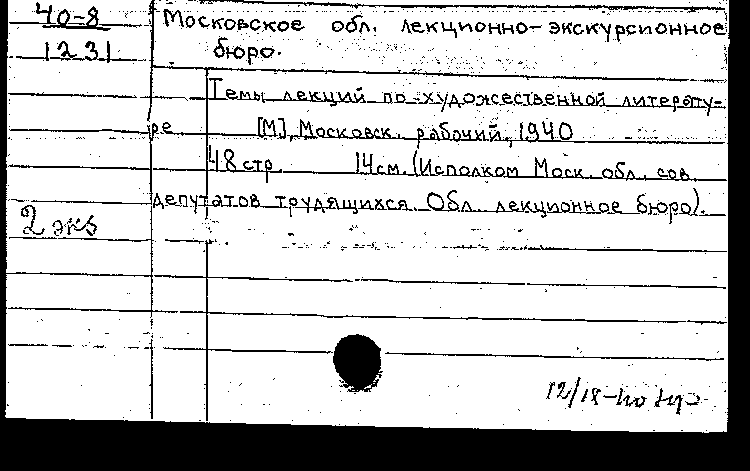 40-8
1231
Московское обл. лекционно-экскурсионное
бюро.
Темы лекций по художественной литерату-
ре [М], Московск. рабочий, 1940
48 стр. 14 см. (Исполком Моск. обл. сов.
депутатов трудящихся. Обл. лекционное бюро).
2 экз
12/18-